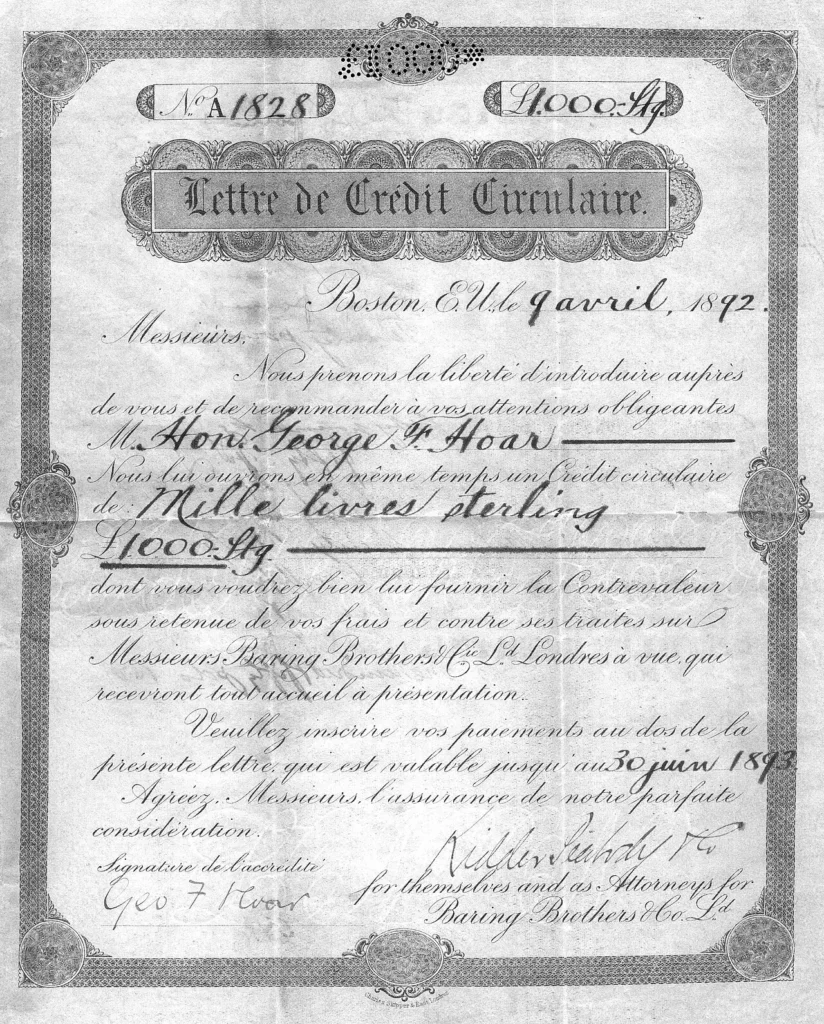 £1000*
No. A 1828
£1.000.-Stg.
Lettre de Crédit Circulaire.
Boston, E.U., le 9 avril, 1892.
Messieurs,
Nous prenons la liberté d'introduire auprès
de vous et de recommander à vos attentions obligeantes
M. Hon. George F. Hoar
Nous lui ouvrons en même temps un Crédit circulaire
de: Mille livres sterling
£1000.-Stg.
dont vous voudrez bien lui fournir la Contrevaleur
sous retenue de vos frais et contre ses traites sur
Messieurs Baring Brothers & Cie. Ld. Londres à vue, qui
recevront tout accueil à présentation.
Veuillez inscrire vos paiements au dos de la
présente lettre, qui est valable jusqu'au 30 juin 1893.
Agréez, Messieurs, l'assurance de notre parfaite
considération.
Kidder Peabody & Co
Signature de l'accrédité
Geo F Hoar
for themselves and as Attorneys for
Baring Brothers & Co. Ld.
Charles Skipper & East, London